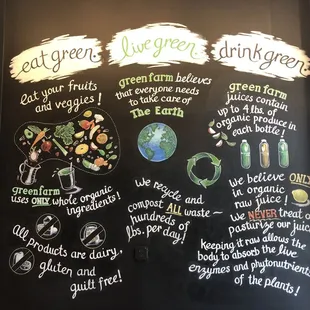 eat green.
eat your fruits
and veggies!
greenfarm
uses ONLY whole organic
ingredients!
All products are dairy,
gluten and
guilt free!
live green.
greenfarm believes
that everyone needs
to take care of
The Earth
We recycle and
compost ALL waste~
hundreds of
lbs. per day!
drink green.
greenfarm
juices contain
up to 4 lbs. of
organic produce in
each bottle!
We believe ONLY
in organic
raw juice!
We NEVER treat or
pasturize our juice
Keeping it raw allows the
body to absorb the live
enzymes and phytonutrients
of the plants!